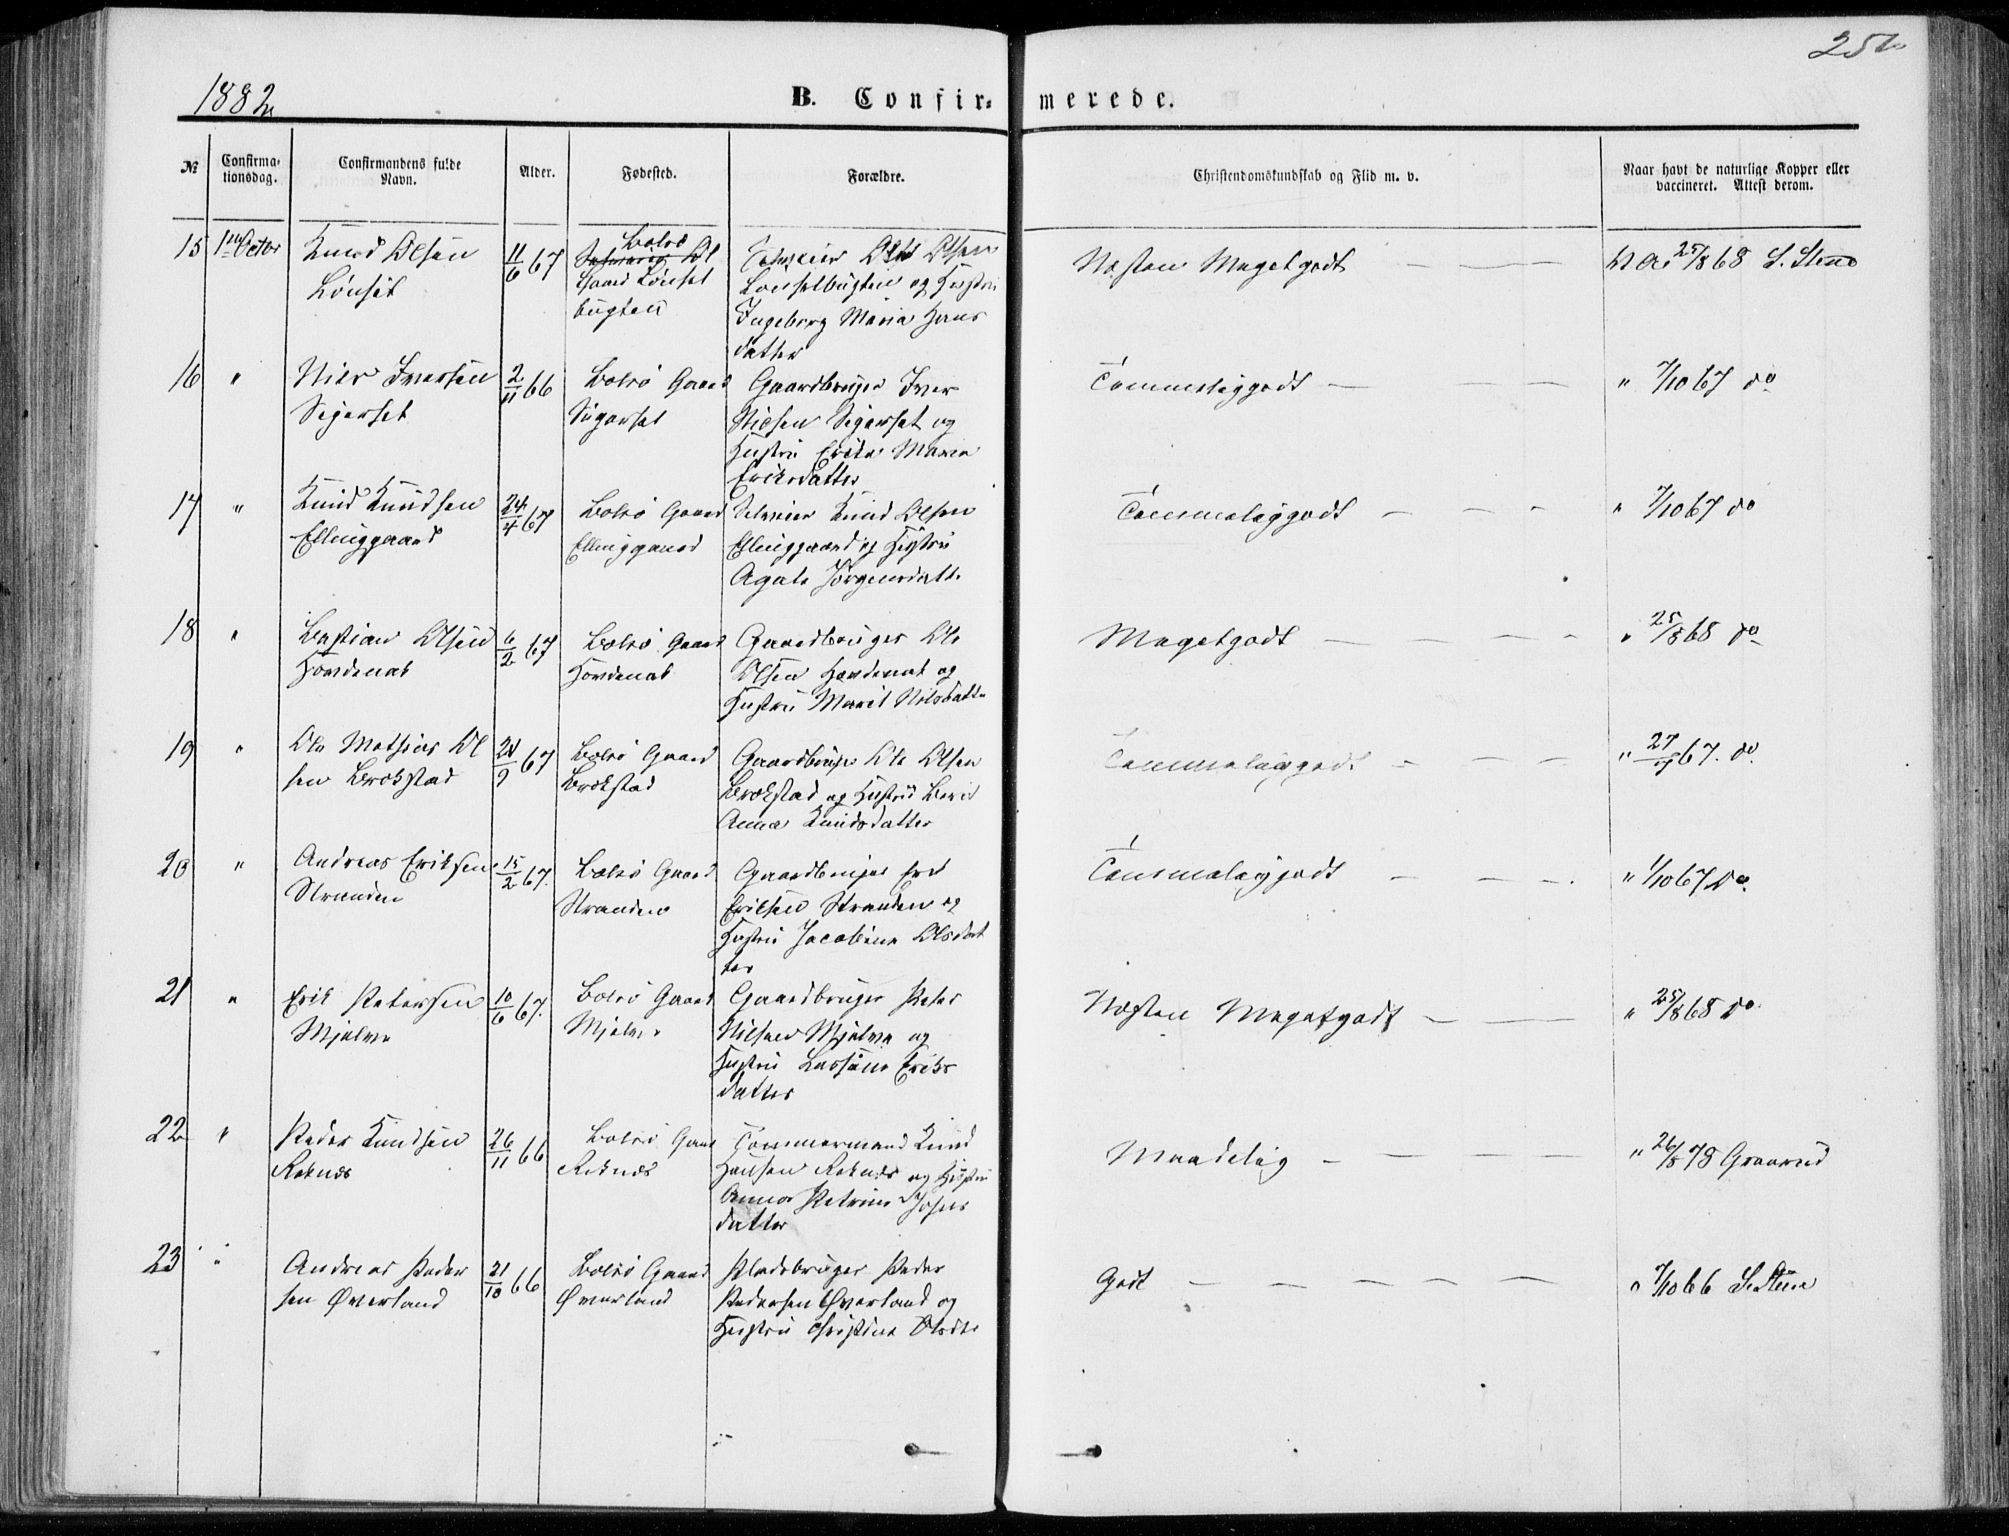 1882
B. Confir-
merede.
№
Confirma-
tionsdag.
Confirmandens fulde
Navn.
Alder.
Fødested.
Forældre.
Christendomskundskab og Flid m. v.
Naar havt de naturlige Kopper eller
vaccineret. Attest derom.
15
Octbr
Knud Olsen
Lønset
11/6 67
Bolsø
Gaard Lønset
bugten
Olsen
Lønsetbugten og Hustru
Ingeborg Maria Hans
datter
Næsten Megetgodt
25/8 68
16
"
Nils Iversen
Sigerset
2/11 66
Bolsø Gaard
Sigerset
Gaardbruger Iver
Nilsen Sigerset og
Hustru Maria
Eriksdatter
Temmeliggodt
" 7/10 67 do
17
"
Knud Knudsen
Ellinggaard
24/4 67
Bolsø Gaard
Ellinggaard
Selveier Knud Olsen
Ellinggaard og Hustru
Agate Jørgensdatt.
Temmeliggodt
" 7/10 67 do
18
"
Bastian Olsen
Hordenak
6/2 67
Bolsø Gaard
Hordenak
Gaardbruger Ole
Olsen Hordenak og
Hustru Marit Nilsdatte
Megetgodt
" 25/8 68 do
19
"
Ole Mathias Ol
sen Brokstad
67
Bolsø Gaard
Brokstad
Gaardbruger Ole Olsen
Brokstad og Hustru Berit
Anna Knudsdatter
Temmeliggodt
67. do.
20
"
Andreas Eriksen
Stranden
15/2 67.
Bolsø Gaard
Stranden
Gaardbruger
Eriksen Stranden og
Hustru Jacobina Olsdat
ter
Temmeliggodt
" 1/10 67 do.
21
"
Erik Petersen
Mjelve
10/6 67.
Bolsø Gaard
Mjelve
Gaardbruger Peter
Nilsen Mjelve og
Hustru Eriks
datter
Næsten Megetgodt
" 25/8 68 do.
22
"
Peder Knudsen
Reknes
26/11 66
Bolsø Gaard
Reknes
Tømmermand Knud
Hansen Reknes og Hustru
Petrine
datter
Maadelig
" 26/8 78
23
"
Andreas Peder
sen Øverland
21/10 66
Bolsø Gaard
Øverland
Pladsbruger Peder
Pedersen Øverland og
Hustru Christine Olsdt.
Godt
" 7/10 66